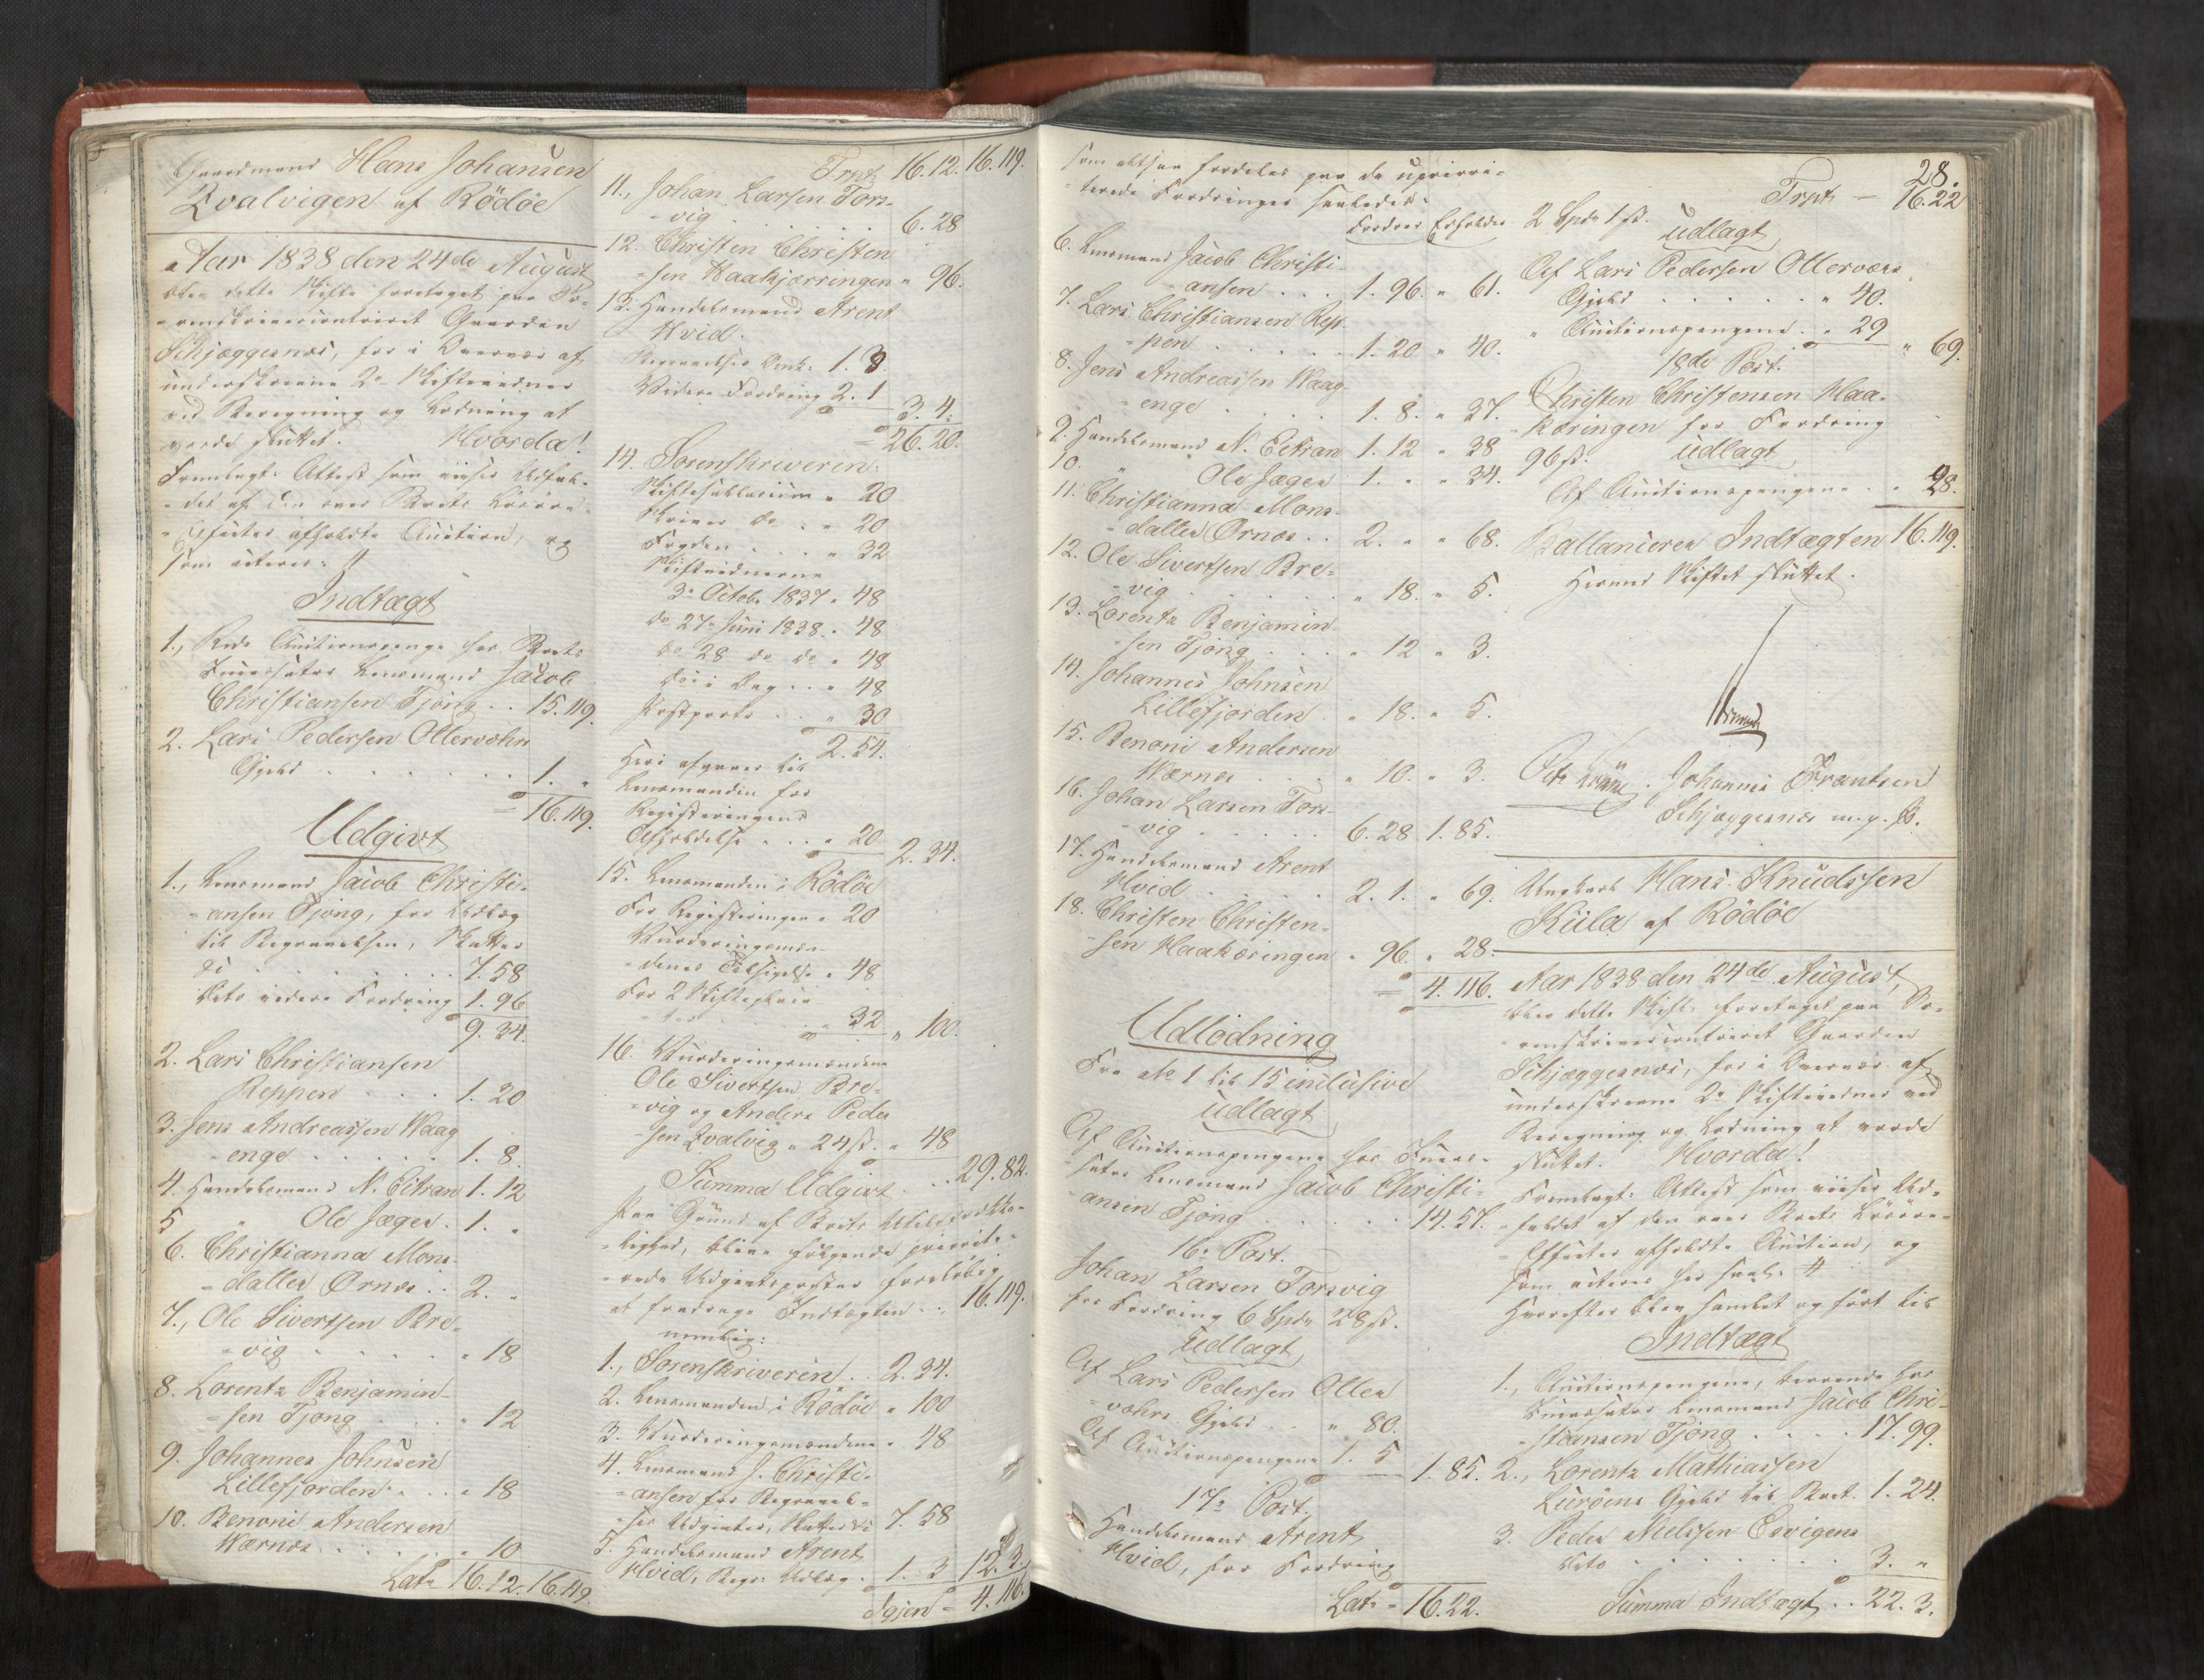 Gaardmand Hans Johansen
Qvalvigen af Rödöe
Aar 1838 den 24de August
blev dette Skifte foretaget paa So-
-renskrivercontoiret Gaarden
Schjæggesnæs, for i Overvær af
underskrevne 2de Skiftevidner
ved Beregning og Lodning at
vorde sluttet. Hvorda!
Fremlagt: Attest som viiser Udfal-
-det af den over Boets Lösöre-
-Effecter afholdte Auction, og
som citeres: #
Indtægt
1., Rede Auctionspenge hos Boets
Incassator Lensmand Jacob
Christiansen Tjong . . 15. 119.
2. Lars Pedersen Ollervohn
Gjeld . . . . . . . 1. "
= 16. 119.
Udgivt
1., Lensmand Jacob Christi-
-ansen Tjong, for Udlæg
til Begravelsen, Skatter
&c . . . . . . . 7. 58
dets videre Fordring 1. 96
9. 34.
2. Lars Christiansen
Reppen . . . . 1. 20
3. Jens Andreassen Waag
-enge . . . . . . 1. 8.
4. Handelsmand N. Eitran 1. 12
5 " Ole Jæger. 1. "
6. Christianna Mons-
-datter Ørnes . . 2. "
7., Ole Sivertsen Bre-
-vig . . . . . " 18
8. Lorentz Benjamin-
-sen Tjong . . . " 12
9. Johannes Johnsen
Lillefjorden . . . " 18
10. Benoni Andersen
Wærnes . . . . . " 10
Lats 16. 12. 16. 119.
Trpt 16. 12. 16. 119.
11., Johan Larsen Tors-
-vig . . . . . . 6. 28
12. Christen Christen
-sen Haakjerringen " 96.
13. Handelsmand Arent
Hvid.
Begravelses Omk. 1. 3.
Videre Fordring 2. 1
3. 4.
= 26. 20.
14. Sorenskriveren:
Skiftesallarium " 20
Skriver do . . " 20
Fogden . . . . " 32
Skiftevidnerne
3de Octobr 1837 " 48
do 27de Juni 1838. " 48
do 28 do do " 48
do i Dag . . " 48
Postporto . . " 30
2. 54.
Heri afgaaer til
Lensmanden for
Registeringens
Afholdelse . . . " 20 2. 34.
15. Lensmanden i Rödöe
For Registeringen " 20
Vurderingsmæn-
-denes Tilsigelse " 48
For 2 Skifteplaca-
-ter . . . . . " 32 " 100.
16. Vurderingsmændene
Ole Sivertsen Bre-
-vig og Anders Peder
-sen Qvalvig " 24 s. " 48
Summa Udgivt . . 29. 82.
Paa Grund af Boets Utilstrække-
-lighed, blive fölgende priorite-
-rede Udgivtsposter forelöbig
at fradrage Indtægten . . 16. 119.
nemlig:
1., Sorenskriveren . . 2. 34.
2. Lensmanden i Rödöe " 100
3. Vurderingsmændene " 48
4. Lensmand J. Christi-
-ansen for Begravel-
-ses Udgivter, Skatter &c 7. 58
5. Handelsmand Arent
Hvid, Begr. Udlæg . 1. 3 12. 3.
Igjen = 4. 116.
28.
som altsaa fordeles paa de uprivori-
-terede Fordringer saaledes:
Fordrer Erholder
6. Lensmand Jacob Christi-
-ansen . . . 1. 96. " 61.
7. Lars Christiansen Rep-
-pen . . . . . 1. 20 " 40.
8. Jens Andreassen Waag-
-enge . . . . 1. 8. " 37.
9. Handelsmand N. Eitran 1. 12 " 38
10. " Ole Jæger 1. " " 34.
11. Christianna Mons-
-datter Ørnes . . 2. " " 68.
12. Ole Sivertsen Bre-
-vig . . . . . " 18. " 5.
13. Lorentz Benjamin
-sen Tjong . . . " 12 " 3.
14. Johannes Johnsen
Lillefjorden . " 18. " 5.
15. Benoni Andersen
Wærnes . . . " 10. " 3.
16. Johan Larsen Tors-
-vig . . . . . 6. 28 1. 85.
17. Handelsmand Arent
Hvid . . . . . 2. 1. " 69.
18. Christen Christen-
-sen Haakæringen " 96. " 28.
= 4. 116.
Udlödning
Fra No 1 til 15 inclusive
udlagt
Af Auctionspengene hos Incas-
-sator Lensmand Jacob Christi-
-ansen Tjong . . . . . 14. 57.
16de Post.
Johan Larsen Torsvig
for Fordring 6 Spd 28 s.
udlagt
Af Lars Pedersen Oller
-vohns Gjeld . . " 80.
Af Auctionspengene 1. 5 1. 85.
17de Post.
Handelsmand Arent
Hvid, for Fordring
Lats = 16. 22.
Trpt — 16. 22
2 Spd 1 s. udlagt
Af Lars Pedersen Ollerværs
Gjeld . . . . . . " 40.
" Auctionspengene . " 29 " 69.
18de Post.
Christen Christensen Haa-
-kæringen for Fordring
96 s. udlagt
Af Auctionspengene . . " 28.
Ballancerer Indtægten 16. 119.
Hermed Skiftet sluttet.
Johannes Frantsen
Schjæggesnæs m. p. P.
Ungkarl Hans Knudssen
Kiila af Rödöe
Aar 1838 den 24de August,
blev dette Skifte foretaget paa So-
-renskrivercontoiret Gaarden
Schjæggesnæs, for i Overvær af
underskrevne 2de Skiftevidner ved
Beregning og Lodning at vorde
sluttet. Hvorda!
Fremlagt: Attest som viiser Ud-
-faldet af den over Boets Lösöre-
-Effecter afholdte Auction, og
som citeres her saal: #
Hvorefter blev samlet og fört til
Indtægt
1., Auctionspengene, beroende hos
Incassator Lensmand Jacob Chri-
-stiansen Tjong . . . . 17. 99.
2., Lorentz Mathiassen
Luröens Gjeld til Boet. 1. 24.
3. Peder Nielssen Esvigens
dito . . . . . . . 3. "
Summa Indtægt . . 22. 3.